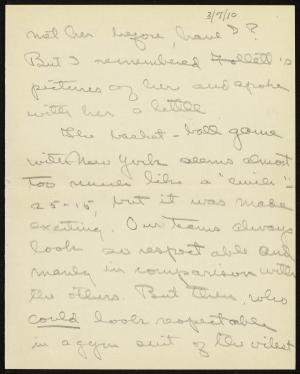 3/7/10
not her before, have I?
But I remembered Follett's
pictures of her and spoke
with her a little
The basket-ball game
with New York seems almost
too much like a "cinch"-
25-15, but it was more
exciting. Our teams always
look so respectable and
manly in comparison with
the others. But then, who
could look respectable
in a gym suit of the vilest